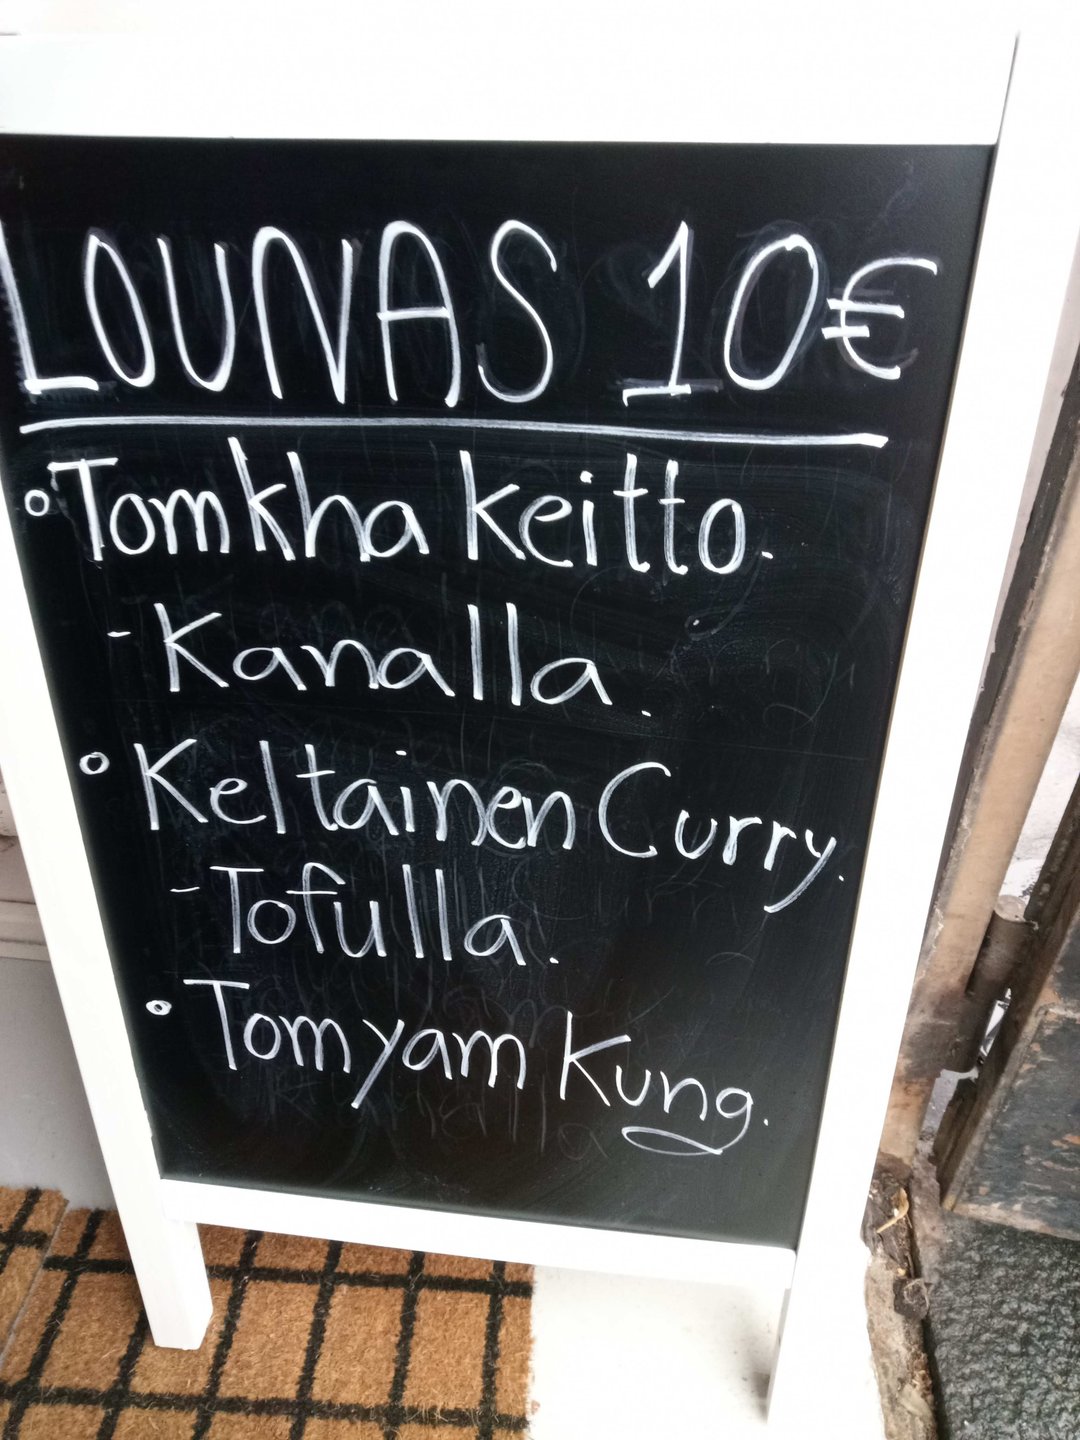 LOUNAS 10€
Tomkha keitto.
- Kanalla.
Keltainen Curry.
- Tofulla.
Tom yam Kung.